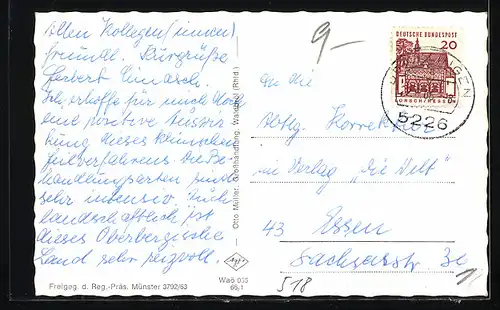 Allen Kollegen(innen)
freundl. Kurgrüße
Herbert
Ich erhoffe für mich Hoch
und positive Auswir
kung dieses klinischen
Heilverfahrens. Die Be-
handlungsarten sind
sehr intensiv. Auch
landschaftlich ist
dieses Oberbergische
Land sehr reizvoll.
Freigeg. d. Reg.-Präs. Münster 3792/63
Otto Müller, Großhandlung, Waldbröl (Rhld.)
Waö 055
66,1
9-
DEUTSCHE BUNDESPOST
20
LORSCH/HESSEN
5226
An die
Abtlg. Korrektur
im Verlag "Die Welt"
43 Essen
Sachsenstr. 36
518